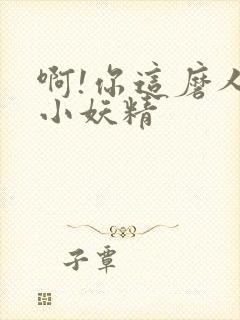 啊!你這磨人
小妖精
子覃